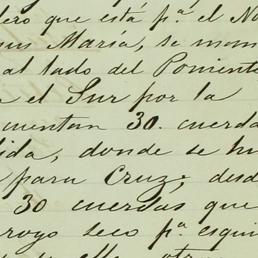 dero que está p.ª el No
sus María, se man
al lado del Poniente
el Sur por la
cuentan 30. cuerda
ida, donde se hi
para Cruz; desd
30 cuerdas que
royo seco p.ª esqui